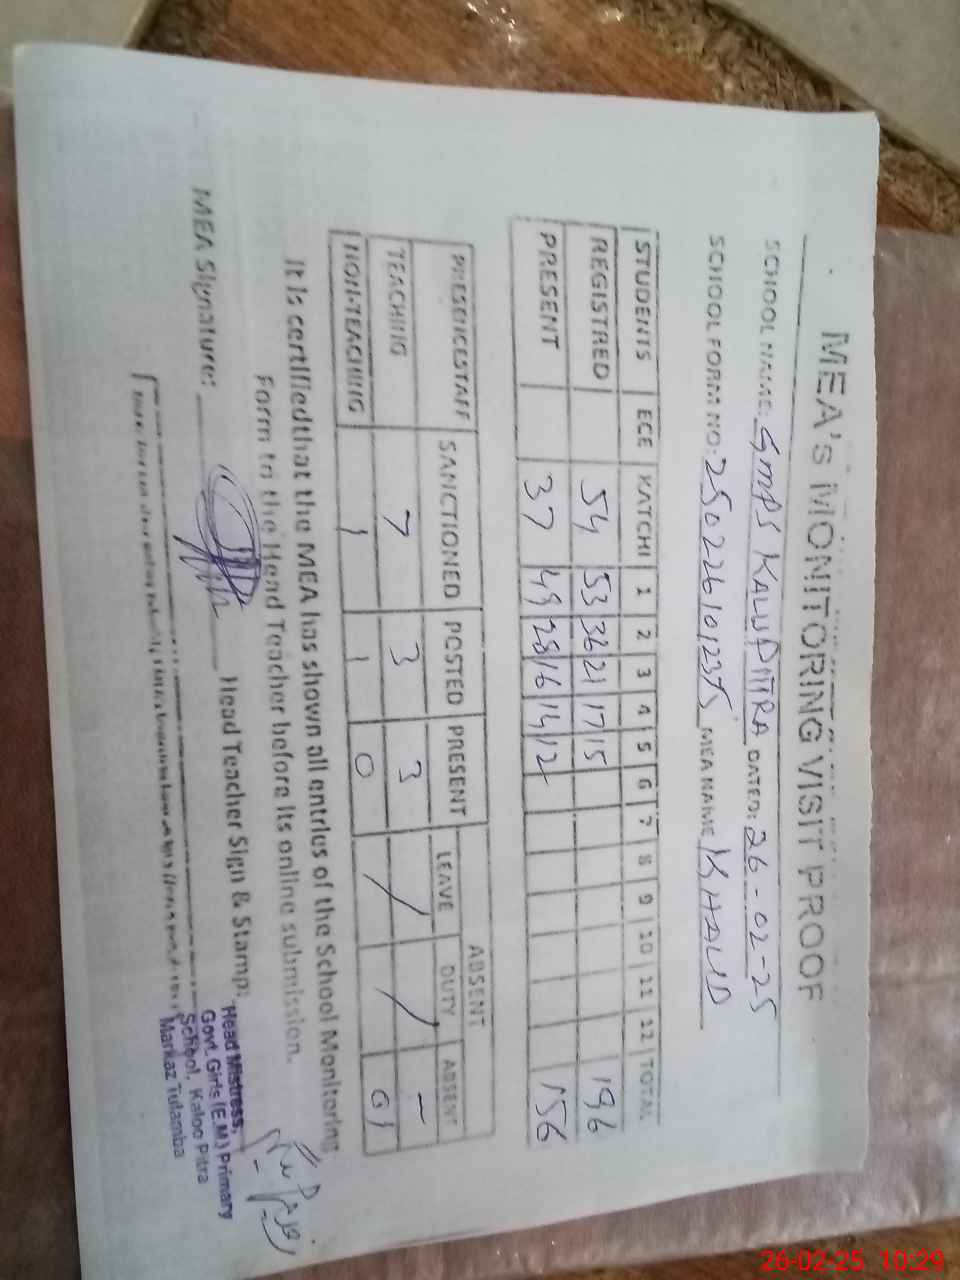 MEA's MONITORING VISIT PROOF
SCHOOL NAME: GMPS KALU PITRA DATED: 26-02-25
SCHOOL FORM NO: 25022610123375 MEA NAME KHALID
STUDENTS ECE KATCHI 1 2 3 4 5 6 7 8 9 10 11 12 TOTAL
REGISTRED 54 53 36 21 17 15 196
PRESENT 37 49 28 16 14 12 156
SANCTIONED POSTED PRESENT ABSENT
LEAVE DUTY ABSENT
TEACHING 7 3 3 / / -
NON-TEACHING 1 1 0 01
It is certifiedthat the MEA has shown all entries of the School Monitoring
Form to the Head Teacher before its online submission.
MEA Signature: Head Teacher Sign & Stamp:
Head Mistress,
Govt. Girls (E.M) Primary
School, Kaloo Pitra
Markaz Tulamba
26-02-25 10:29